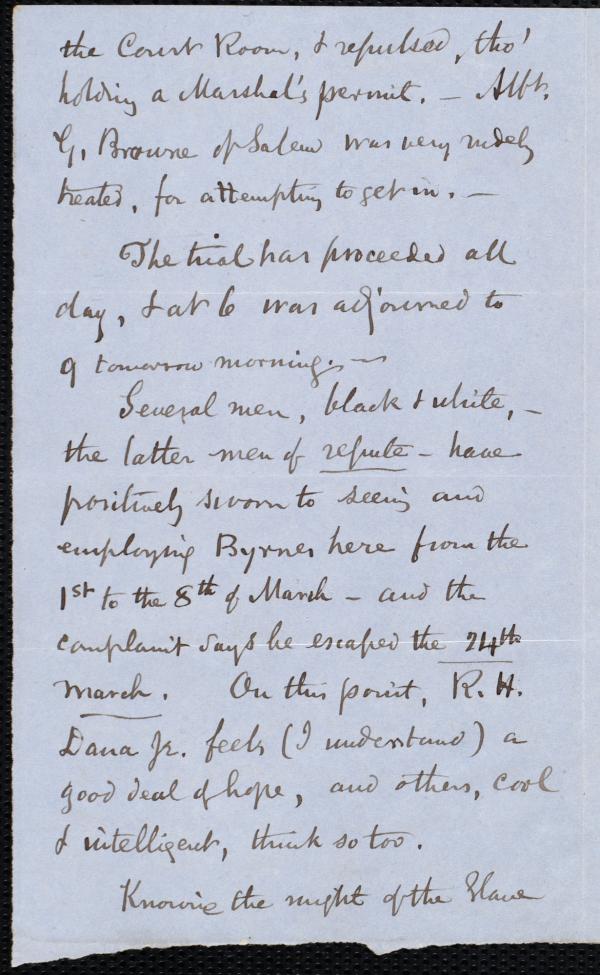 the Court Room, & repulsed, tho'
holding a Marshal's permit. — Albt.
G. Browne of Salem was very rudely
treated, for attempting to get in. —
The trial has proceeded all
day, & at 6 was adjourned to
9 tomorrow morning. —
Several men, black & white, —
the latter men of repute — have
positively sworn to seeing and
employing Byrnes here from the
1st to the 8th of March — and the
complaint says he escaped the 24th
March. On this point, R. H.
Dana Jr. feels (I understand) a
good deal of hope, and others, cool
& intelligent, think so too.
Knowing the might of the Slave